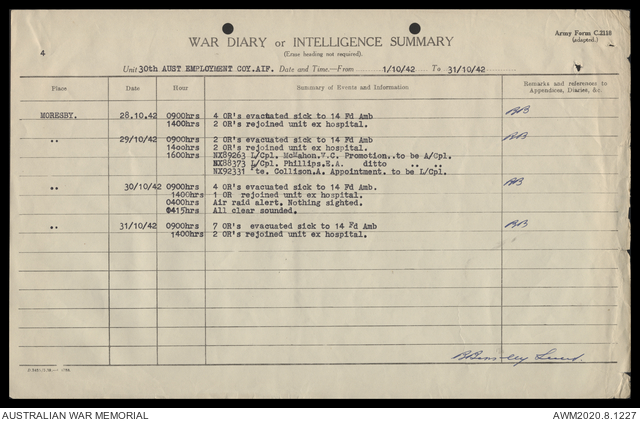 Army Form C.2118
(adapted.)
WAR DIARY or INTELLIGENCE SUMMARY
(Erase heading not required).
4
Unit 30th AUST EMPLOYMENT COY.AIF. Date and Time.—From 1/10/42 To 31/10/42
Place Date Hour Summary of Events and Information Remarks and references to Appendices, Diaries, &c
MORESBY. 28.10.42 0900hrs 4 OR's evacuated sick to 14 Fd Amb BB
1400hrs 2 OR's rejoined unit ex hospital.
.. 29/10/42 0900hrs 2 OR's evacuated sick to 14 Fd Amb BB
14oohrs 2 OR's rejoined unit ex hospital.
1600hrs NX89263 L/Cpl. McMahon.F.C. Promotion..to be A/Cpl.
NX88373 L/Cpl. Phillips.E.A. ditto .. ..
NX92331 'te. Collison.A. Appointment. to be L/Cpl.
.. 30/10/42 0900hrs 4 OR's evacuated sick to 14 Fd Amb. BB
1400hrs 1 OR rejoined unit ex hospital.
0400hrs Air raid alert. Nothing sighted.
0415hrs All clear sounded.
.. 31/10/42 0900hrs 7 OR's evacuated sick to 14 Fd Amb BB
1400hrs 2 OR's rejoined unit ex hospital.
Lieut.
AUSTRALIAN WAR MEMORIAL AWM2020.8.1227